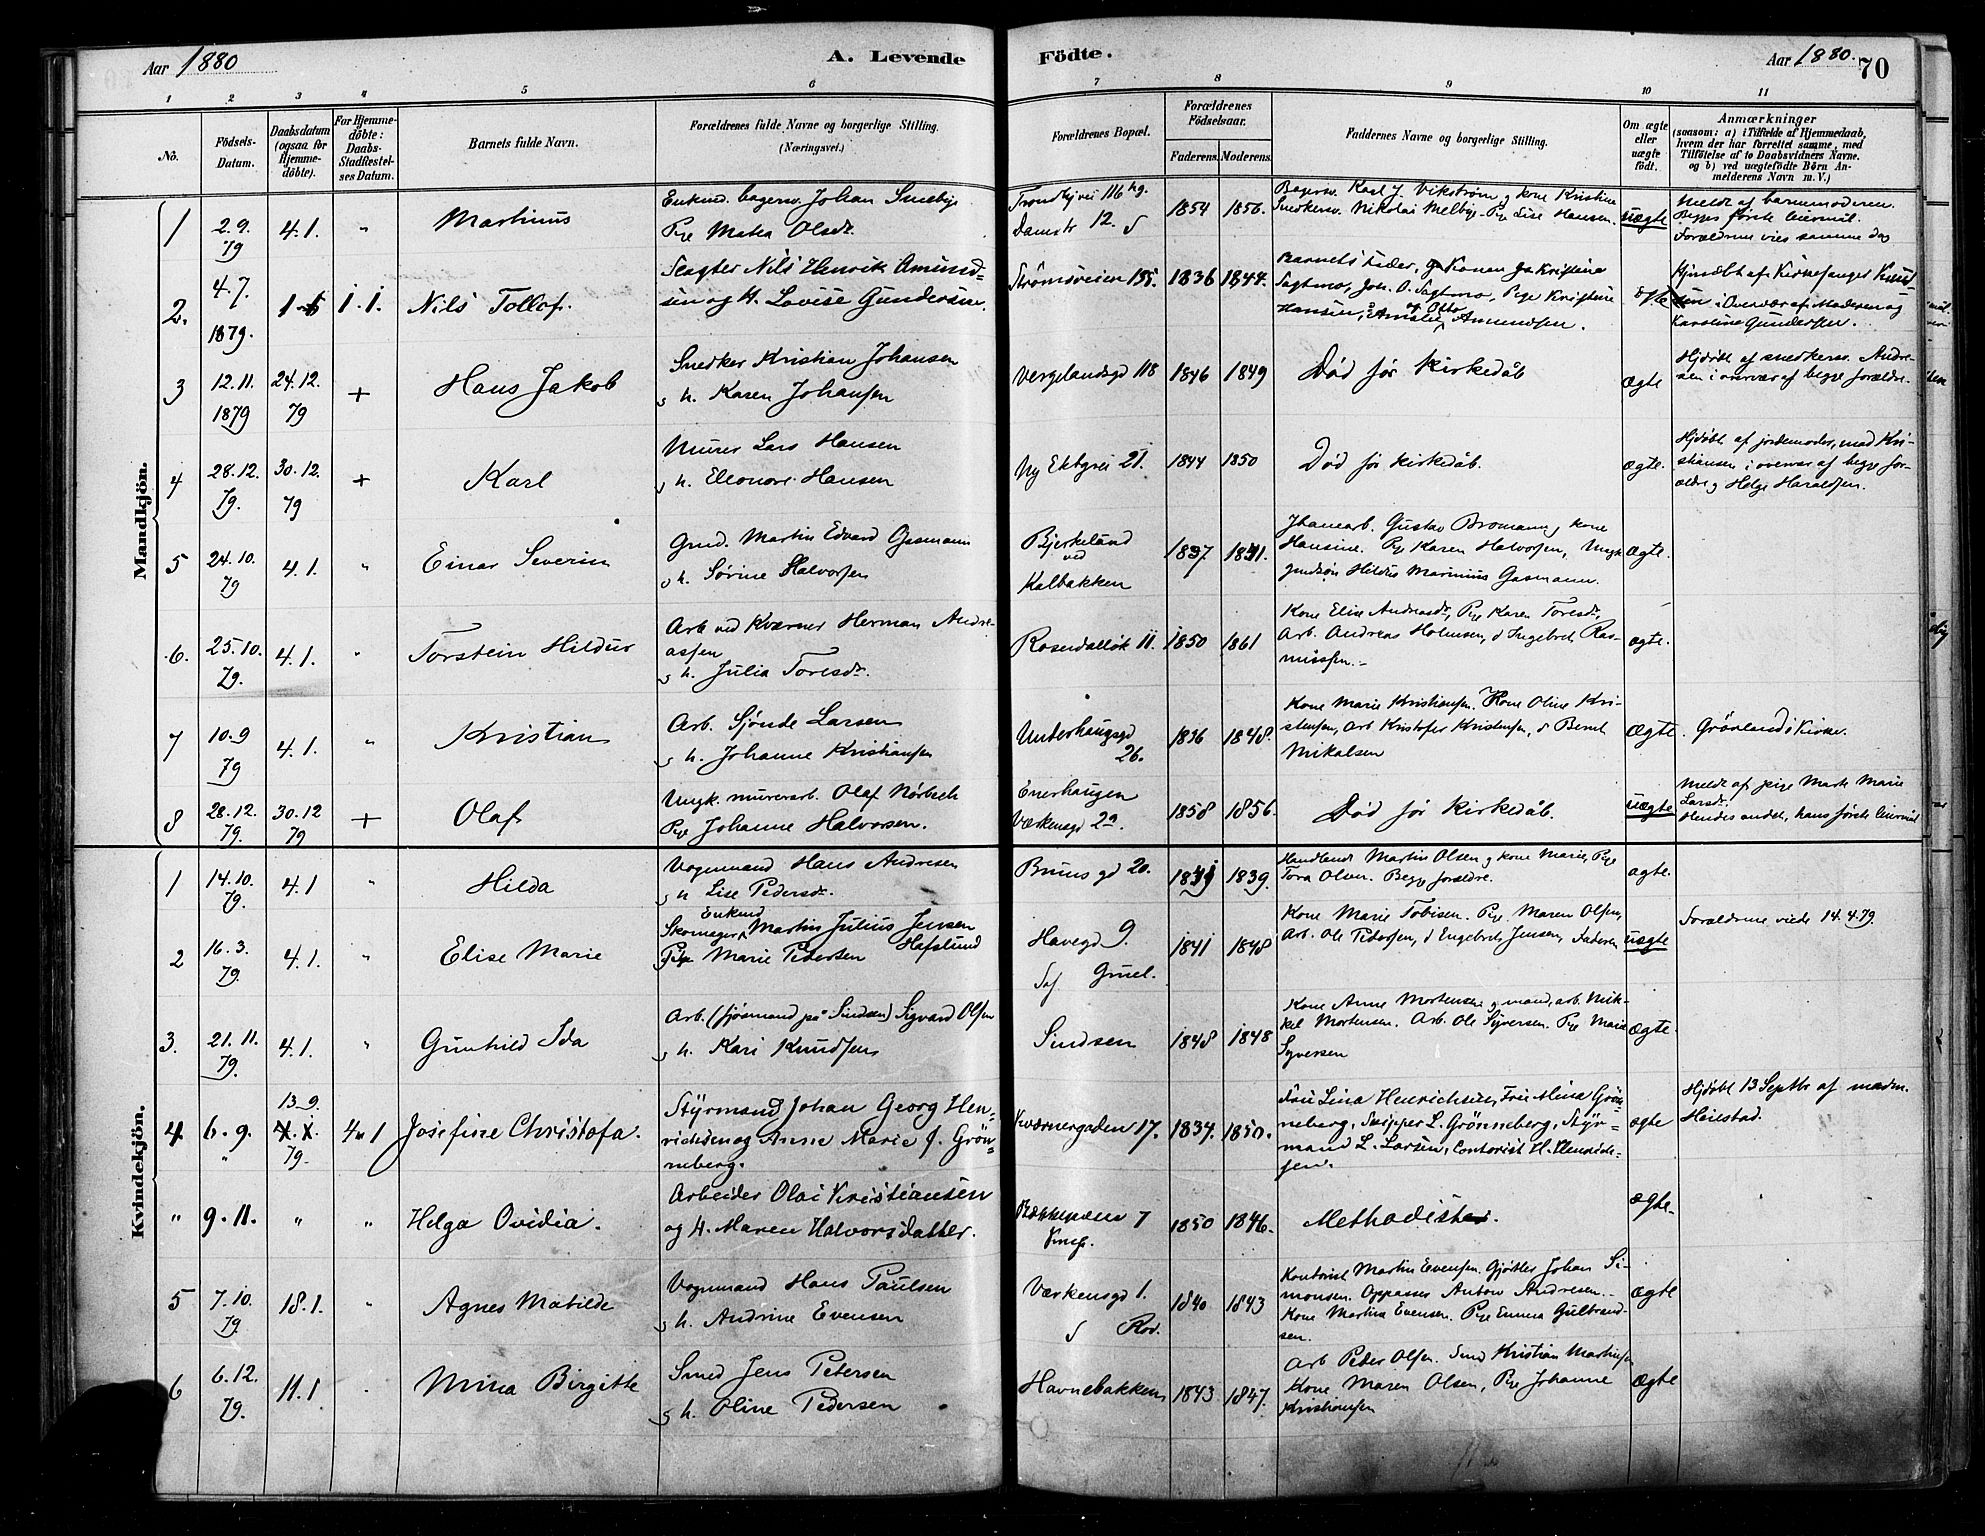 Aar 1880
A. Levende
Födte.
Aar 1880.
70
1 2 3 4 5 6 7 8 9 10 11
No.
Födsels-
Datum.
Daabsdatum
(ogsaa for
Hjemme-
döbte).
For Hjemme-
döbte:
Daabs-
Stadfæstel-
ses Datum.
Barnets fulde Navn.
Forældrenes fulde Navne og borgerlige Stilling.
(Næringsvei.)
Forældrenes Bopæl.
Forældrenes
Födselsaar.
Faderens. Moderens.
Faddernes Navne og borgerlige Stilling.
Om ægte
eller
uægte
födt.
Anmærkninger
(saasom: a) i Tilfælde af Hjemmedaab,
hvem der har forrettet samme, med
Tilföielse af to Daabsvidners Navne.
og b) ved uægtefödte Börn An-
melderens Navn m. V.)
Mandkjön.
1
2.9.
79
4.1.
"
Martinus
Enkmd. bagersv. Johan Smeby
Pige Mathea Olsdr.
Trondhjvei 116 hg.
Damstr 12.
1854 1856.
Bagersv. Karl J. Vikström, kone Kristine
Snedkersv. Nikolai Melbye. Pige Lise Hansen.
uægte
Meldt af barnemoderen.
Begges første leiermål.
Forældrene vies samme dag
2.
4.7.
1879.
1.1.
Nils Tollof.
Slagter Nils Henrik Amund=
sen og H. Lovise Gundersen.
Strømsveien 135.
1836 1844.
Barnets Fader, Konen Kristine
Sagtmo, Joh. O. Sagtmo, Pige Kristine
Hansen, og Otto Amundsen.
ægte
Hjmdøbt af Kirkesanger Knud-
sen i Overvær af Moderen og
Karoline Gundersen.
3
12.11.
1879
24.12.
79
+
Hans Jakob
Snedker Kristian Johansen
o h. Karen Johansen
Vergelandsgd 118
1846 1849
Död för kirkedåb
ægte
Hjdøbt af snedkersv. Andre-
sen i overvær af begge forældre.
4
28.12.
79.
30.12.
79
+
Karl
Murer Lars Hansen
o h. Eleonore Hansen
Ny Ekbgvei 21.
1844 1850
Död för kirkedåb.
ægte.
Hjdøbt af jordemoder, mad Kri-
stiansen i overvær af begge for-
ældre og Helge Haraldsen.
5
24.10.
79
4.1.
"
Einar Severin
Grud. Martin Edvard Gasmann
o h. Sörine Halvorsen
Bjerkelund
ved
Kalbakken
1837 1841.
Jbanearb. Gustav Bromann, kone
Hansine. Pige Karen Halvorsen, Ungk
Hildus Marinius Gasmann.
ægte.
6.
25.10.
79.
4.1.
"
Torstein Hildur
Arb ved Kværner Herman Andre-
assen
o h. Julia Toresdr.
Rosendalløk 11.
1850 1861
Kone Elise Andreasdr, Pige Karen Toresdr,
Arb. Andreas Holmsen, o Ingebret Ras-
mussen.
ægte.
7
10.9
79
4.1.
"
Kristian
Arb. Sjönde Larsen
o h. Johanne Kristiansen
Underhaugsgd
26.
1836 1848.
Kone Marie Kristiansen. Kone Oline Kri-
stensen, Arb Kristofer Kristensen, o Bernt
Mikalsen
ægte.
Grönlands Kirke.
8
28.12.
79.
30.12
79
+
Olaf
Ungk. murerarb. Olaf Nörbech
Pige Johanne Halvorsen.
Enerhaugen
Værkensgd 2a.
1858 1856.
Död för kirkedåb.
uægte
Meldt af pige Marte Marie
Larsdr.
Hendes andet, hans første leiermål
Kvindekjön.
1
14.10.
79.
4.1
"
Hilda
Vognmand Hans Andresen
o h. Lise Pedersdr.
Bruns gd 20.
1839.
Handlende Martin Olsen og kone Marie, Pige
Tora Olsen. Begge forældre.
ægte.
2
16.3.
79.
4.1.
"
Elise Marie
Skomager, Enkmd Martin Julius Jensen
Hafslund
Pige Marie Pedersen
Havegd 9.
1841 1848
Kone Marie Tobisen. Pige Maren Olsen,
Arb. Ole Pedersen, o Engebreth Jensen, Faderen
uægte
Forældrene viede 14.4.79.
3.
21.11.
79.
4.1.
"
Gunhild Ida
Arb. (fjøsmand på Sindsen) Sigvard Olsen
o h. Kari Knudsen
Sindsen
1848 1848
Kone Anne Mortensen og mand, arb. Mik-
kel Mortensen. Arb. Ole Syversen. Pige Marie
Syversen
ægte.
4.
6.9.
"
13.9.
79.
4/1
Josefine Christofa.
Styrmand Johan Georg Hen-
richsen og Anne Marie f. Grön=
neberg.
Kværnergaden 17.
1834. 1850.
Frue Lina Henrichsen, Frue Mina Grön=
neberg, Skipper L. Grönneberg, Styr=
mand L. Larsen, Contorist H. Henrich-
sen.
ægte
Hjdøbt 13 Septbr af madm.
Heiestad.
" 9.11. " "
Helga Ovidia.
Arbeider Olai Kristiansen
og H. Maren Halvorsdatter.
1850 1846.
Methodister.
ægte.
5
7.10.
79.
18.1.
"
Agnes Matilde
Vognmand Hans Paulsen
o h. Andrine Evensen
Værkensgd 1.
1840 1843
Kontorist Martin Evensen. Gjørtler Johan Si-
monsen. Oppasser Anton Andresen.
Kone Martina Evensen. Pige Emma Gulbrand-
sen.
ægte
6
6.12.
79.
11.1
"
Mina Birgitte
Smed Jens Petersen
o h. Oline Pedersen
Havnebakken
1843 1847.
Arb Peder Olsen. Smed Kristian Martinsen
Kone Maren Olsen, Pige Johanne
Kristiansen
ægte